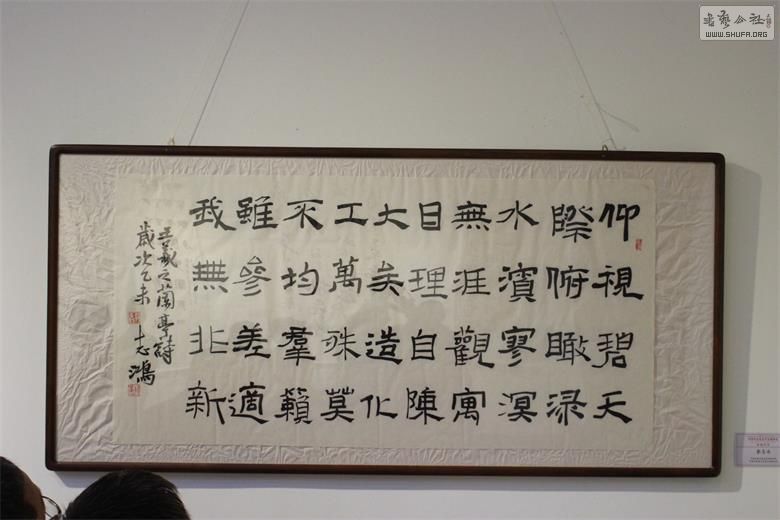 仰視碧天
際俯瞰淥
水濱寥溟
無涯觀寓
目理自陳
大矣造化
工萬殊莫
不均羣籟
雖參差適
我無非新
王羲之蘭亭詩
歲次乙未 志鴻
书艺公社
WWW.SHUFA.ORG